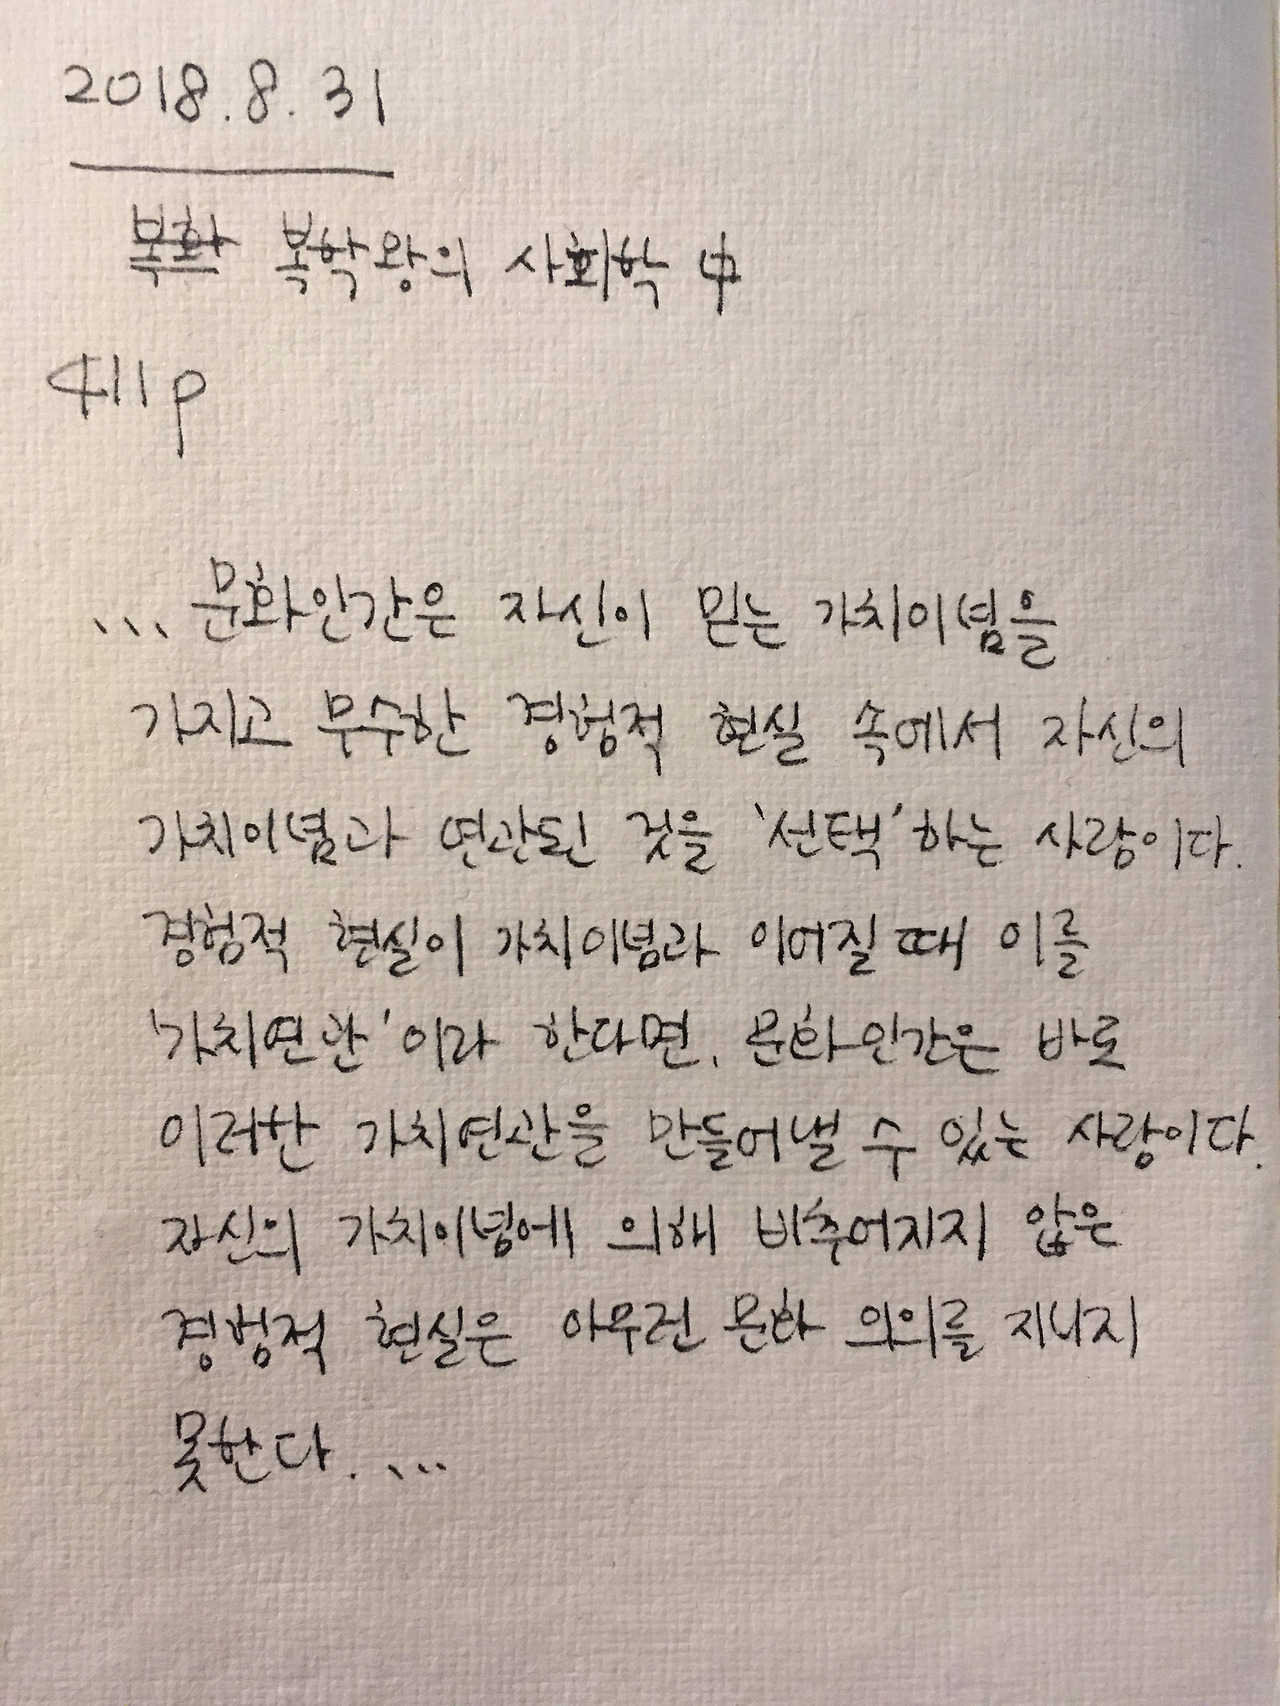 2018.8.31
복학왕의 사회학 中
411p
... 문화인간은 자신이 믿는 가치이념을
가지고 무수한 경험적 현실 속에서 자신의
가치이념과 연관된 것을 '선택'하는 사람이다.
경험적 현실이 가치이념과 이어질 때 이를
'가치연관'이라 한다면, 문화인간은 바로
이러한 가치연관을 만들어낼 수 있는 사람이다.
자신의 가치이념에 의해 비추어지지 않은
경험적 현실은 아무런 문화 의의를 지니지
못한다. ...